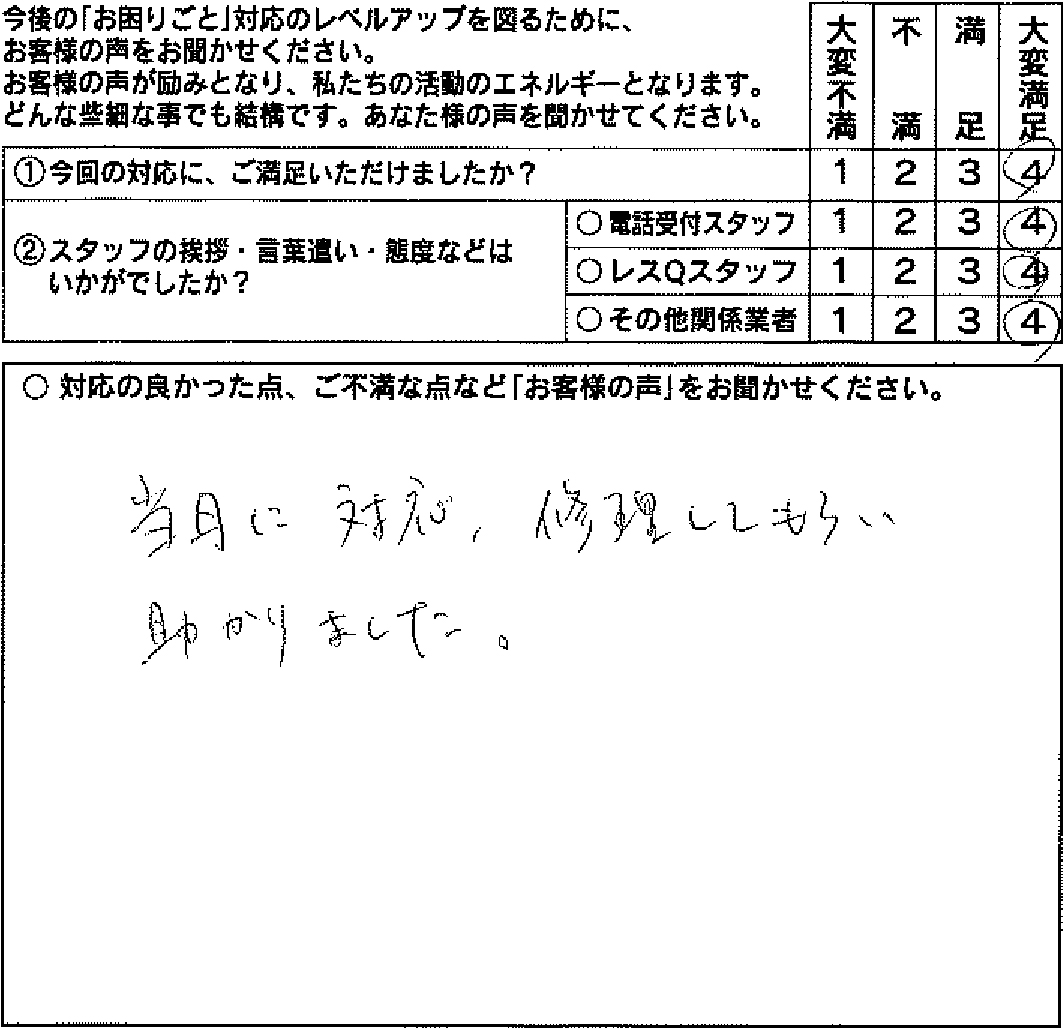 今後の「お困りごと」対応のレベルアップを図るために、
お客様の声をお聞かせください。
お客様の声が励みとなり、私たちの活動のエネルギーとなります。
どんな些細な事でも結構です。あなた様の声を聞かせてください。
大変不満 不満 満足 大変満足
①今回の対応に、ご満足いただけましたか? 1 2 3 4
②スタッフの挨拶・言葉遣い・態度などは
いかがでしたか?
○電話受付スタッフ 1 2 3 4
○レスQスタッフ 1 2 3 4
○その他関係業者 1 2 3 4
○ 対応の良かった点、ご不満な点など「お客様の声」をお聞かせください。
当日に対応、修理してもらい
助かりました。